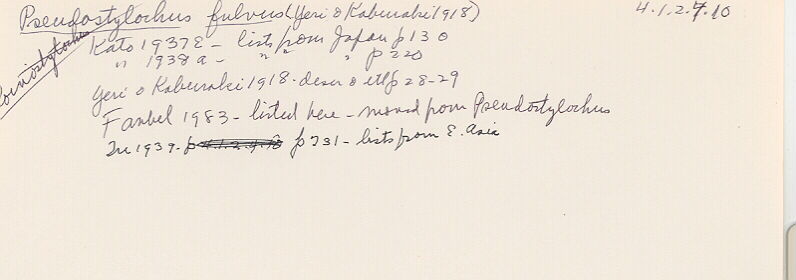 Pseudostylochus fulvus (Yeri & Kaburaki 1918) 4.1.2.7.10
Kato 1937E - lists from Japan p 130
" 1938a - " " " p 220
Yeri & Kaburaki 1918 - descr & etlf p 28-29
Faubel 1983 - listed here - moved from Pseudostylochus
1939 - p 731 - lists from E. Asia